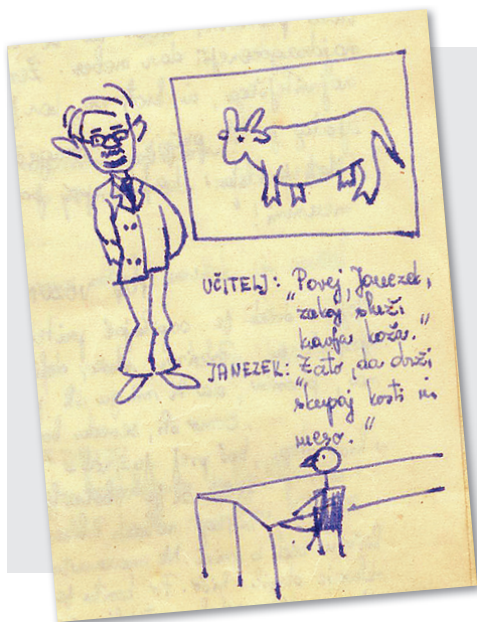 UČITELJ: „Povej, Janezek,
zakaj služi
kravja koža.“
JANEZEK: „Zato, da drži
skupaj kosti in
meso.“